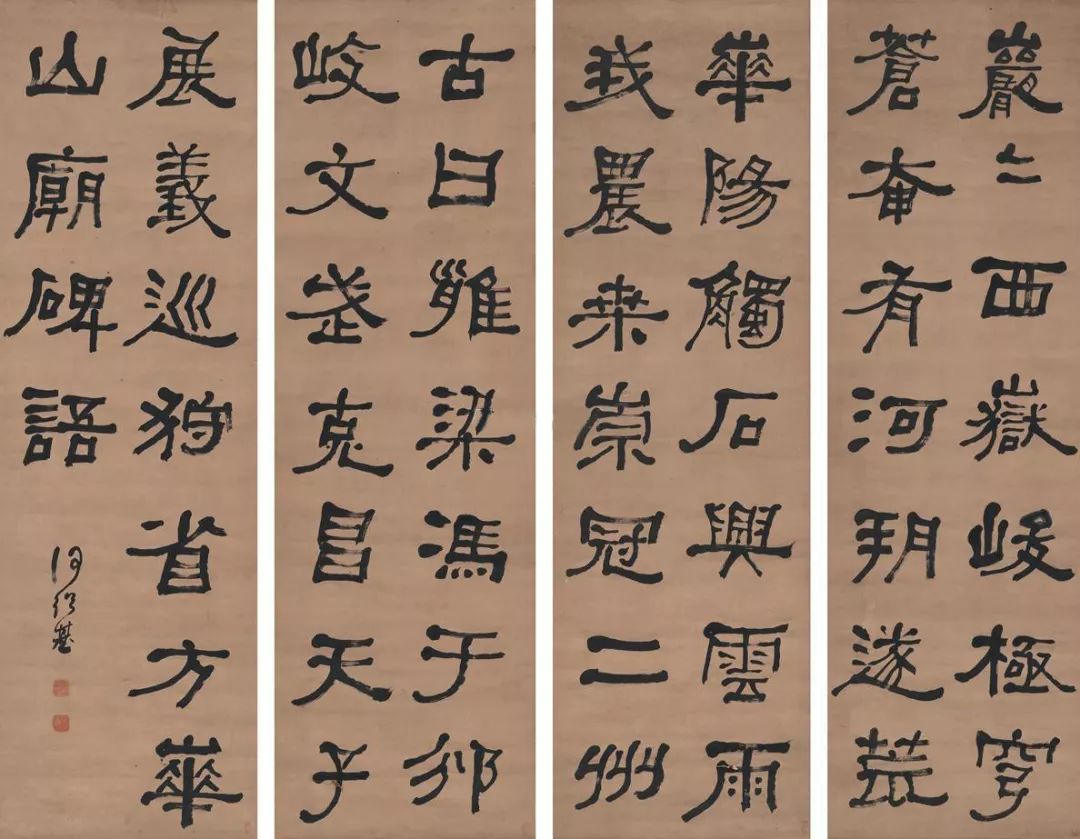 巖〻西嶽峻極穹
蒼奄有河朔遂荒
華陽觸石興雲雨
我農桒崇冠二州
古曰雍梁馮于邠
岐文武克昌天子
展義巡狩省方華
山廟碑語
何紹基